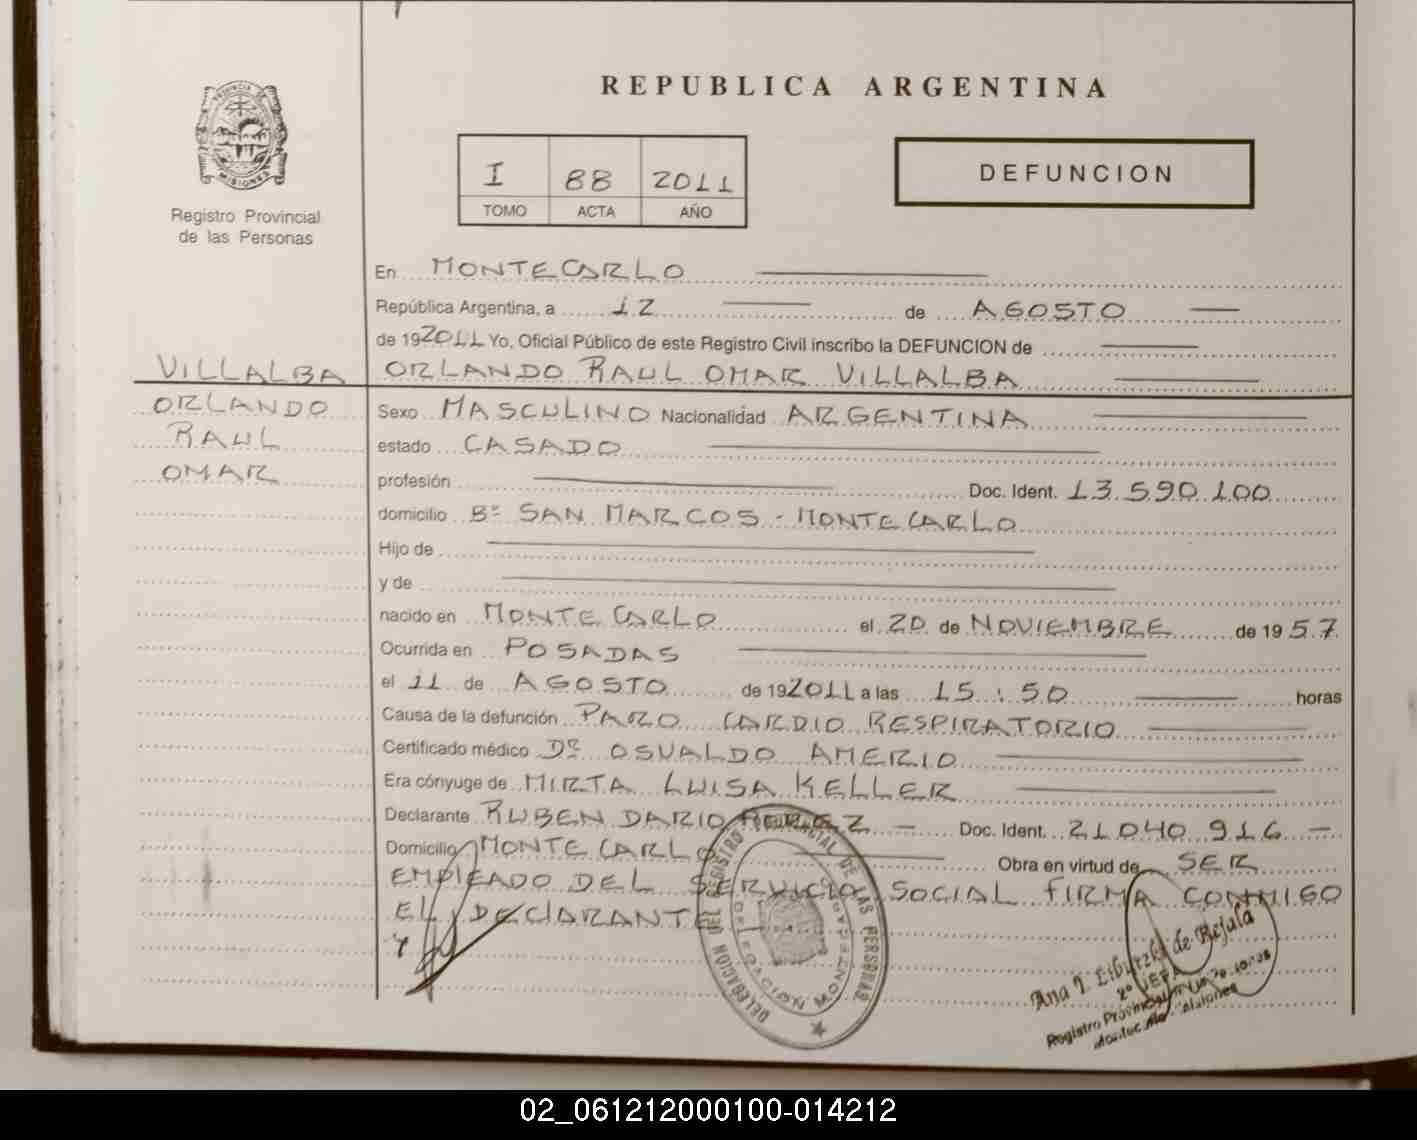 REPUBLICA ARGENTINA
PROVINCIA DE
MISIONES
Registro Provincial
de las Personas
I 88 2011
TOMO ACTA AÑO
DEFUNCION
En MONTECARLO
República Argentina, a 12 de AGOSTO
de 192011 Yo, Oficial Público de este Registro Civil inscribo la DEFUNCION de
VILLALBA ORLANDO RAUL OMAR VILLALBA
ORLANDO Sexo MASCULINO Nacionalidad ARGENTINA
RAUL estado CASADO
OMAR profesión Doc. Ident. 13.590.100
domicilio Bº SAN MARCOS - MONTECARLO
Hijo de
y de
nacido en MONTECARLO el 20 de NOVIEMBRE de 1957
Ocurrida en POSADAS
el 11 de AGOSTO de 192011 a las 15:50 horas
Causa de la defunción PARO CARDIO RESPIRATORIO
Certificado médico Dr. OSVALDO AMERIO
Era cónyuge de MIRTA LUISA KELLER
Declarante RUBEN DARIO PEREZ Doc. Ident. 21.040.916
Domicilio MONTECARLO Obra en virtud de SER
EMPLEADO DEL SERVICIO SOCIAL FIRMA CONMIGO
EL DECLARANTE
DELEGACION DEL REGISTRO PROVINCIAL DE LAS PERSONAS
DELEGACION MONTECARLO
Ana I. de Rejala
2º JEFA
Registro Provincial
Misiones
02_061212000100-014212